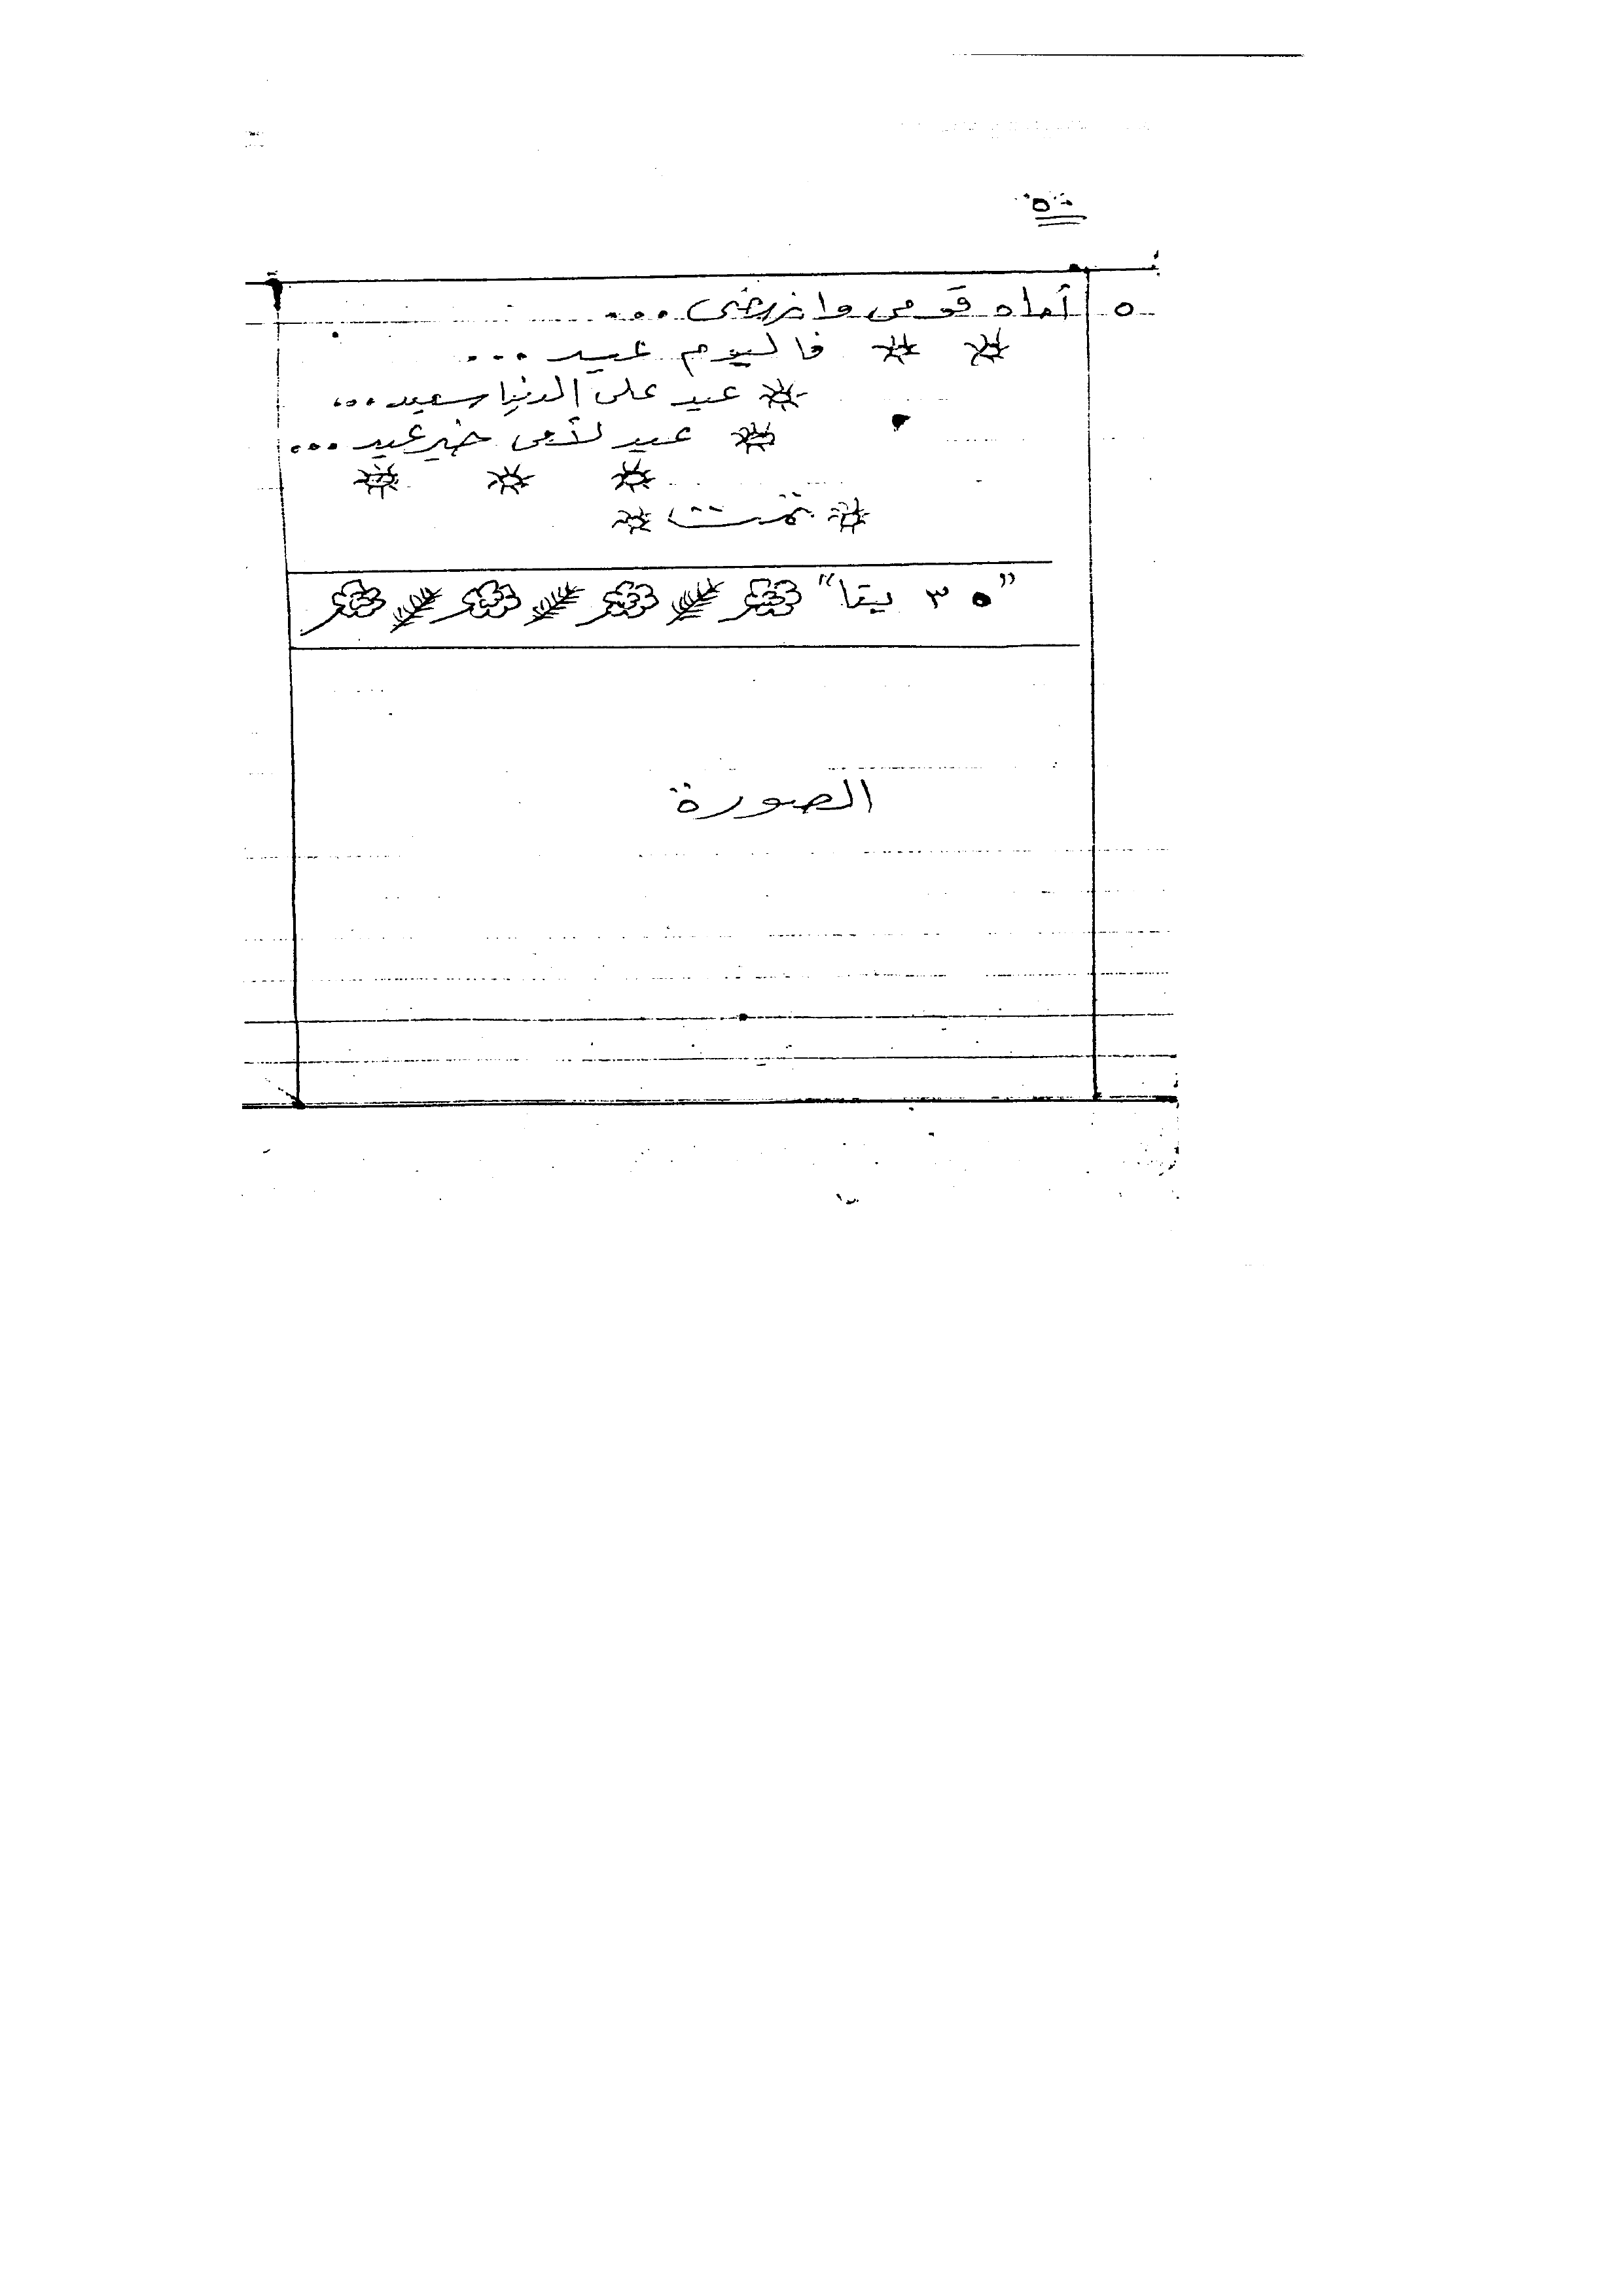 ٥ أماه قومى وانهضى ...
فاليوم عيد ...
عيد على الدنيا سعيد ...
عيد لأمى خير عيد ...
تمت
"٣٠ بيتا"
الصورة